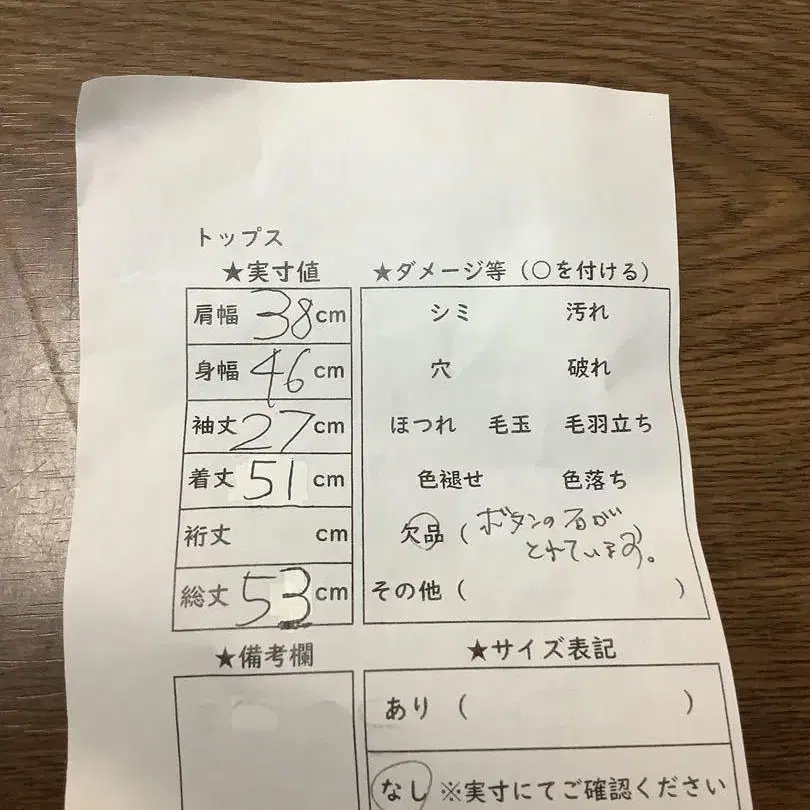 トップス
★実寸値
肩幅 38 cm
身幅 46 cm
袖丈 27 cm
着丈 51 cm
裄丈 cm
総丈 53 cm
★ダメージ等（○を付ける）
シミ 汚れ
穴 破れ
ほつれ 毛玉 毛羽立ち
色褪せ 色落ち
欠品（ボタンの石が
とれています。）
その他（ ）
★備考欄
★サイズ表記
あり（ ）
なし ※実寸にてご確認ください